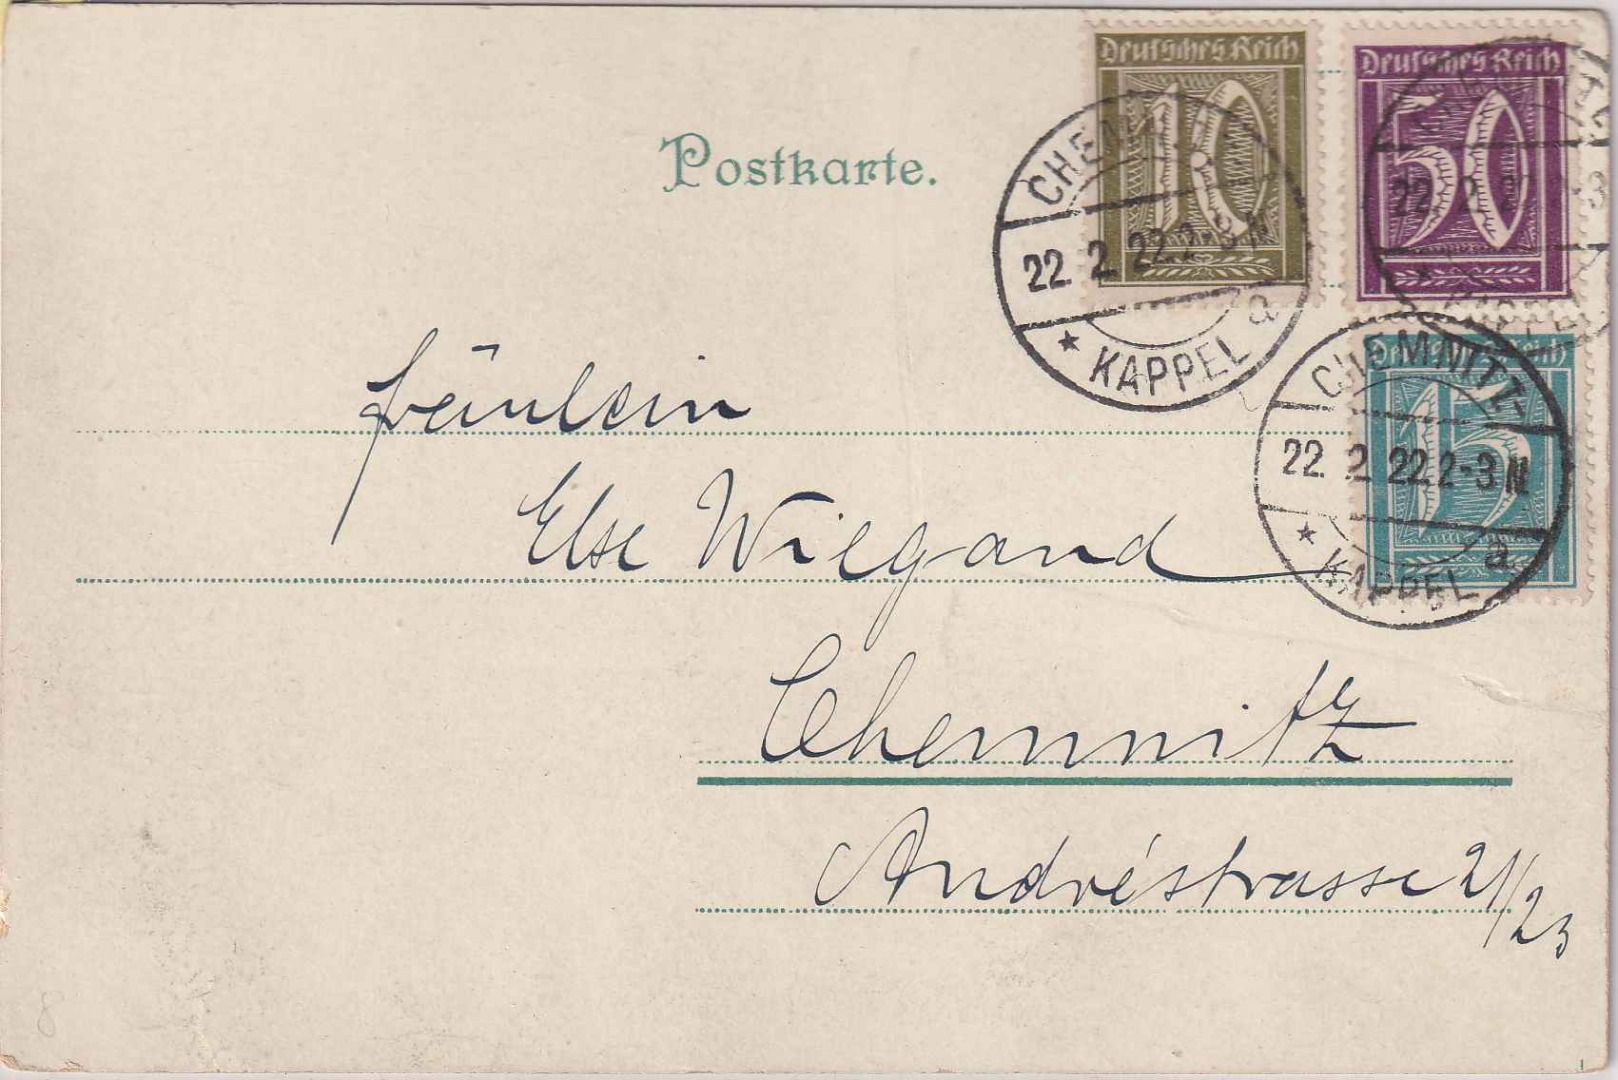 Postkarte.
Deutsches Reich
10
Deutsches Reich
50
Deutsches Reich
15
CHEMNITZ-
22. 2. 22. 2-3 N
* KAPPEL a
22. 2. 22.
CHEMNITZ-
22. 2. 22. 2-3 N.
* KAPPEL a
Fräulein
Else Wiegand
Chemnitz
Andréstrasse 21/23
8